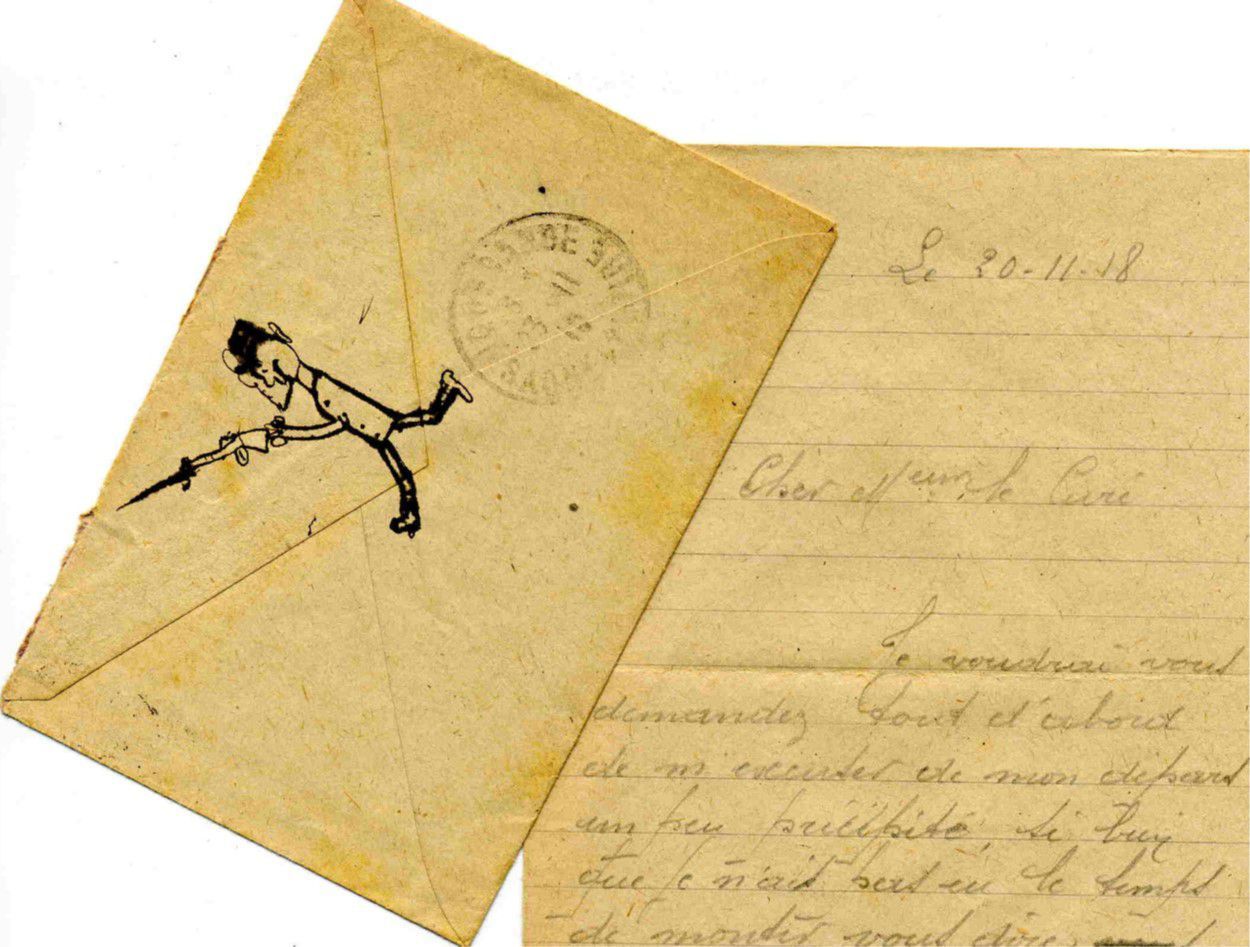 Le 20-11-18
Cher Meur le Curé
Je voudrai vous
demandez tout d'abord
de m'excuser de mon départ
un peu précipité, si bien
que je n'ait pas eu le temps
de monter vous dire